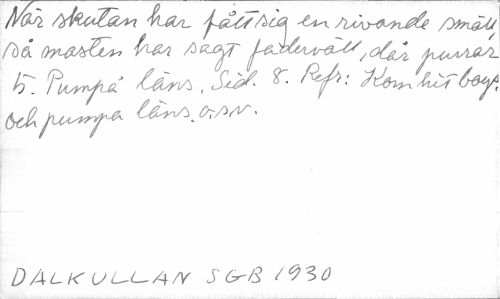 När skutan har fått sig en rivande smäll,
så masten har sagt fädervält, då purrar
5. Pumpa läns. Sid. 8. Refr: Kom hit boys.
och pumpa läns. o.s.v.
DALKULLAN SGB 1930